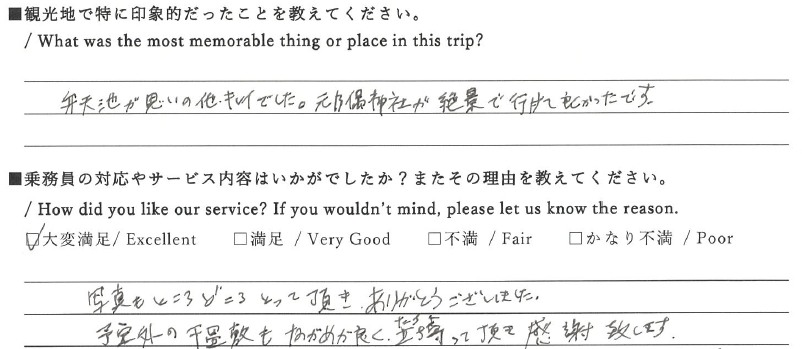 ■観光地で特に印象的だったことを教えてください。
/ What was the most memorable thing or place in this trip?
弁天池が思いの他、キレイでした。元乃隅神社が絶景で行けて良かったです。
■乗務員の対応やサービス内容はいかがでしたか？またその理由を教えてください。
/ How did you like our service? If you wouldn't mind, please let us know the reason.
☑大変満足/ Excellent □満足 / Very Good □不満 / Fair □かなり不満 / Poor
写真もところどころとって頂き、ありがとうございました。
予定外の千畳敷もながめが良く、立ち寄って頂き感謝致します。